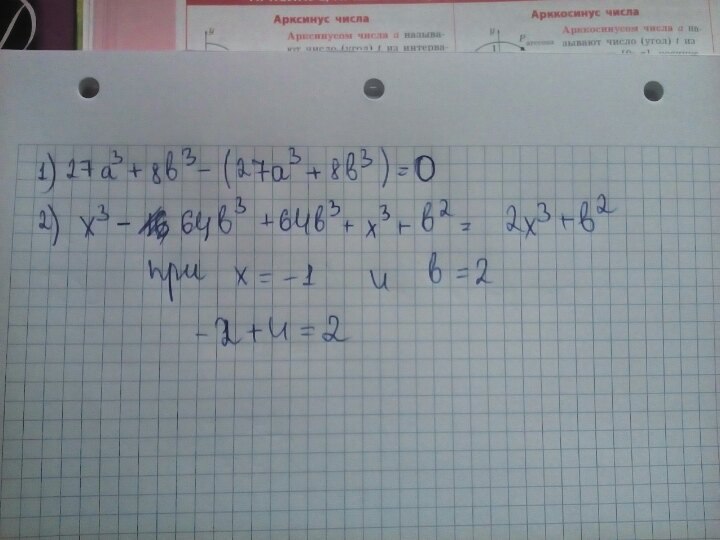 Арксинус числа
Арккосинус числа
Арксинусом числа a называ-
ют число (угол) t из интерва-
Арккосинусом числа a на-
зывают число (угол) t из
1) 27a³ + 8b³ - (27a³ + 8b³) = 0
2) x³ - 64b³ + 64b³ + x³ + b² = 2x³ + b²
при x = -1 и b = 2
-2 + 4 = 2